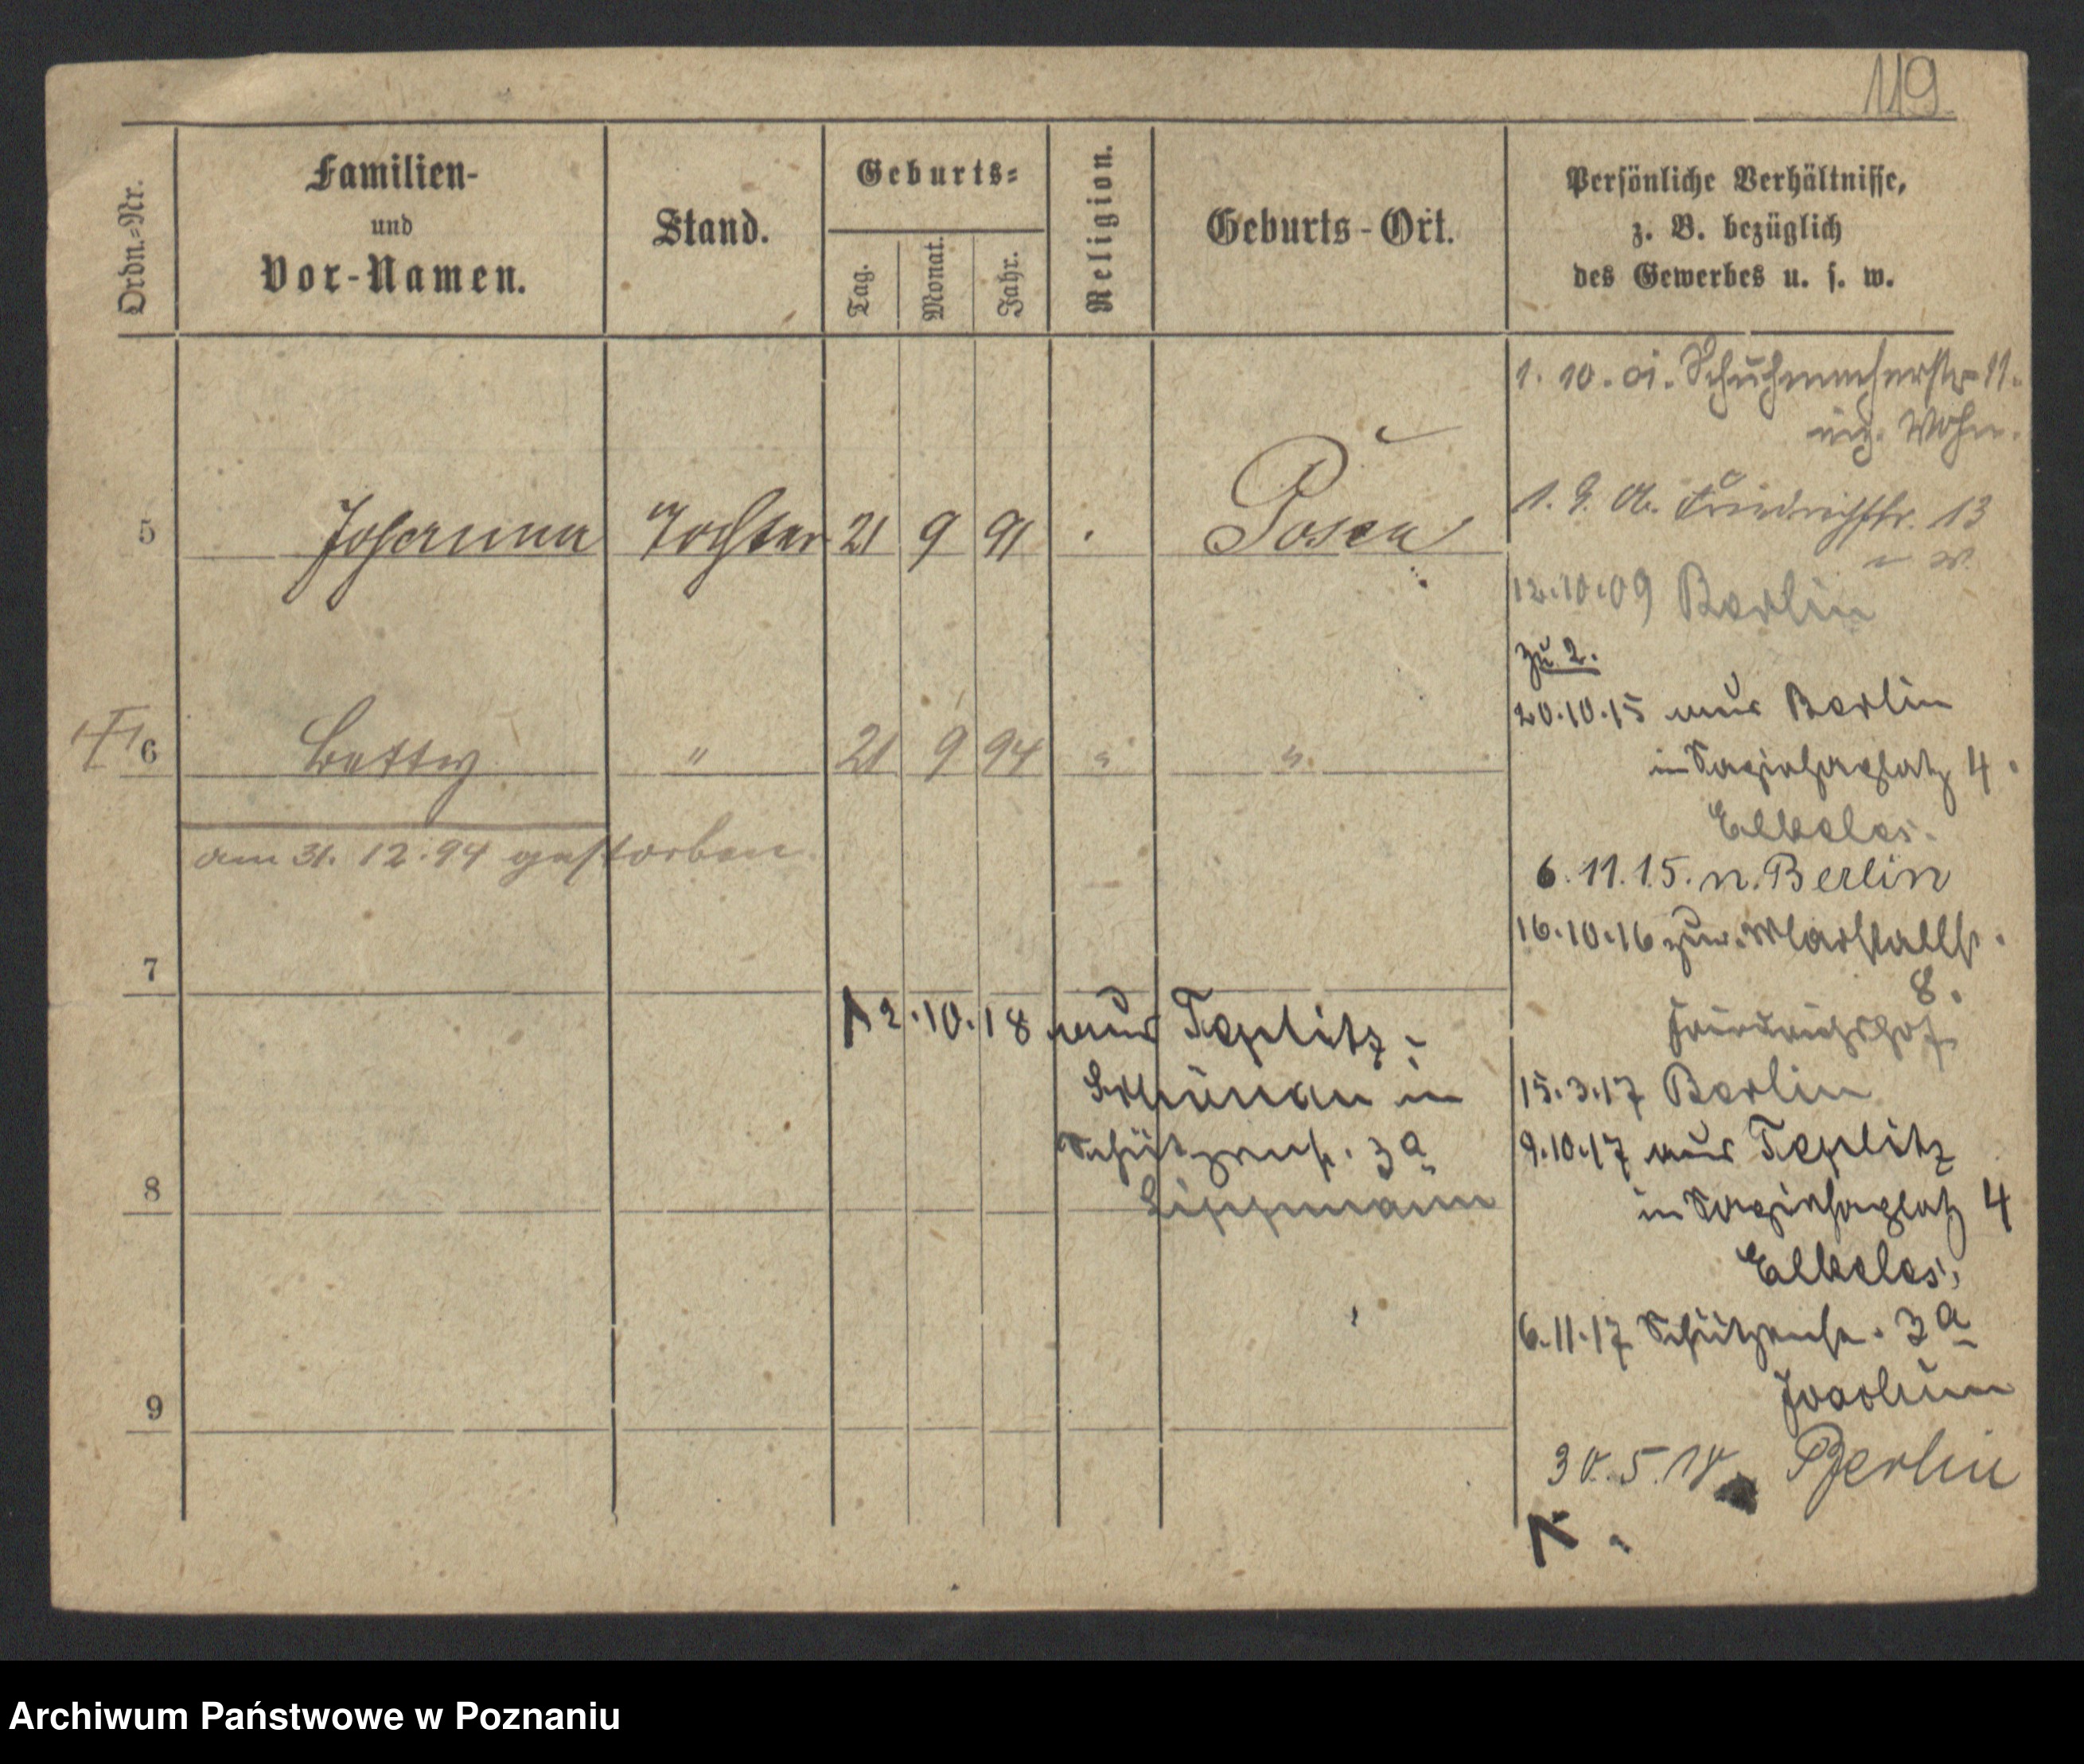 119
Ordn.-Nr.
Familien-
und
Vor-Namen.
Stand.
Geburts-
Tag.
Monat.
Jahr.
Religion.
Geburts-Ort.
Persönliche Verhältnisse,
z. B. bezüglich
des Gewerbes u. s. w.
5 Johanna Tochter 21 9 91 Posen
6 Betty " 21 9 94 " "
am 31. 12. 94 gestorben.
7
8
9
12.10.18 aus Teplitz-
Schönau in
Schützenstr. 3a
Lippmann
1. 10. 01. Schuhmacherstr 11.
Wohn.
Friedrichstr. 13
n W.
12.10.09 Berlin
zu 2.
20.10.15 aus Berlin
in Sapiehaplatz 4.
Elkeles.
6.11.15. n. Berlin
16.10.16 zur. Marstallstr.
8.
Friedrichshof
15.3.17 Berlin
9.10.17 aus Teplitz
in Sapiehaplatz 4
Elkeles.
6.11.17 Schützenstr. 3a
Joachim
30.5.18 Berlin
Archiwum Państwowe w Poznaniu